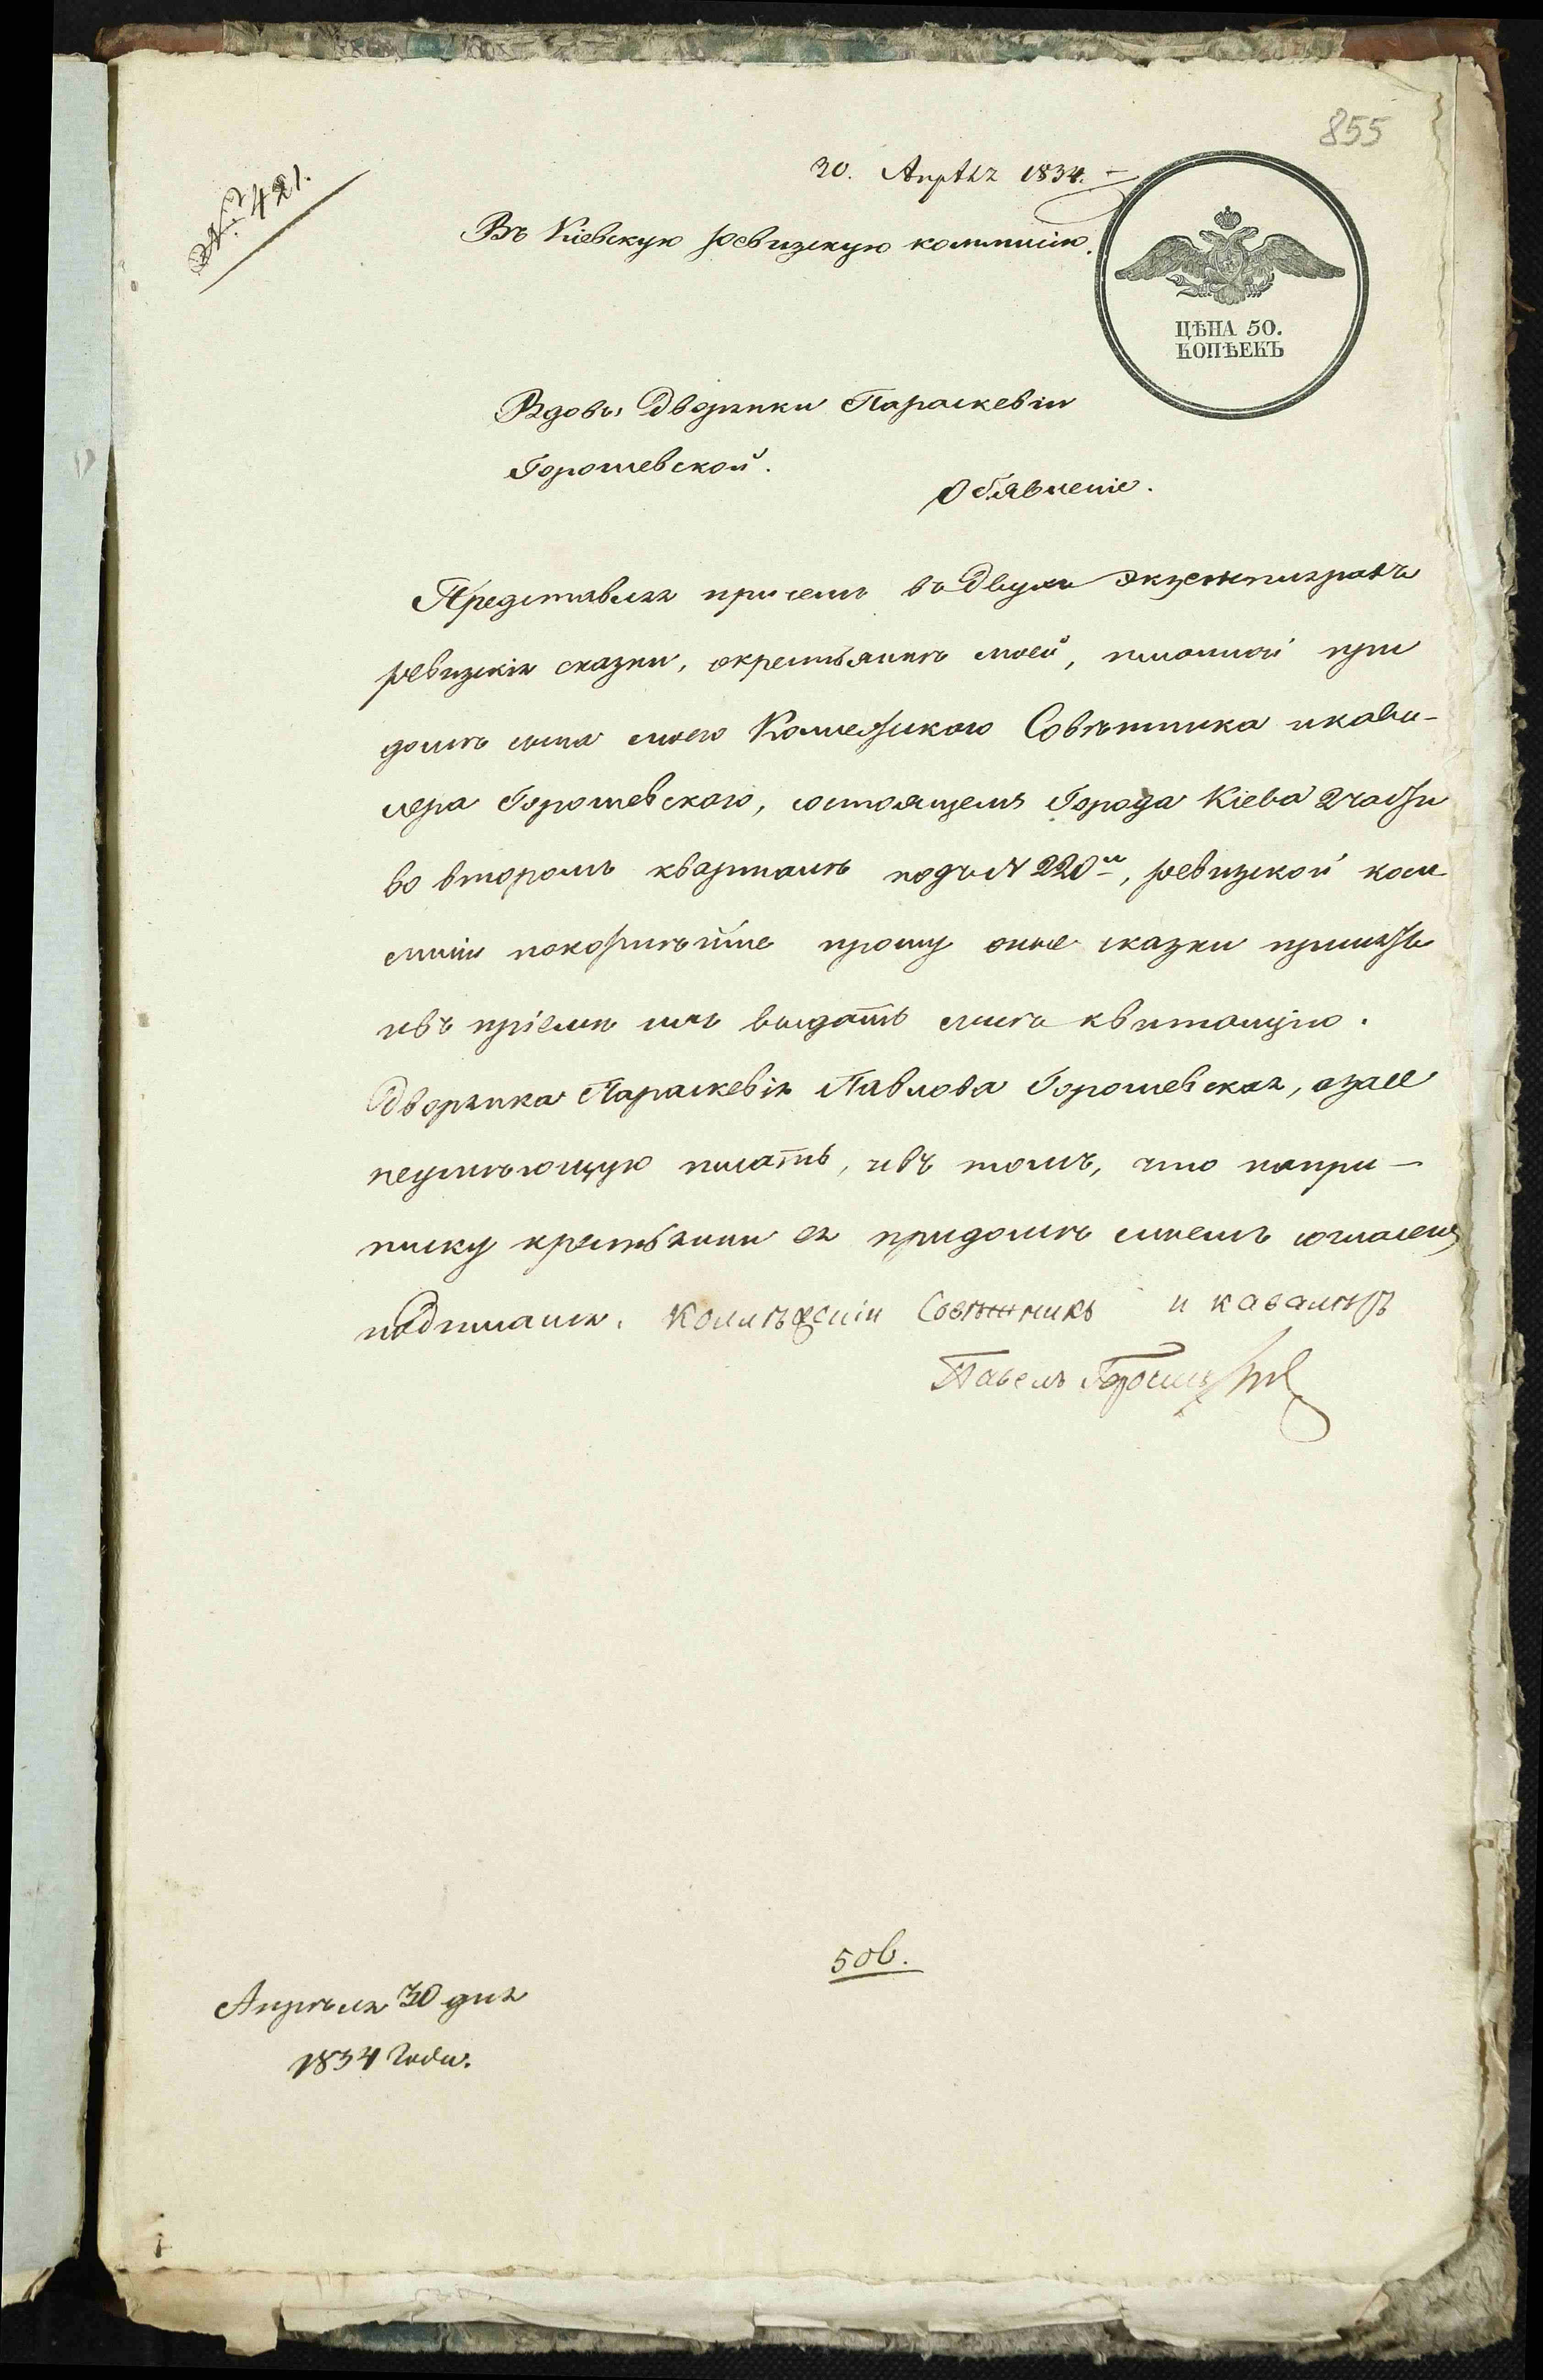 855
№ 421.
30. Апрѣля 1834.
Въ Кіевскую ревизскую коммисію.
ЦѢНА 50.
КОПѢЕКЪ
Вдовы Дворянки Параскевіи
Горошевской.
Объявленіе.
Представляя при семъ въ двухъ экземплярахъ
ревизскія сказки, о крестьянкѣ моей, писанной при
домѣ сына моего Коллежскаго Совѣтника и кава-
лера Горошевскаго, состоящемъ Города Кіева 2 части
во второмъ кварталѣ подъ № 220м, ревизской ком
мисіи покорнѣйше прошу оные сказки принять
и въ пріемѣ ихъ выдать мнѣ квитанцію.
Дворянка Параскевія Павлова Горошевская, а за нее
неумѣющую писать, и въ томъ, что на при-
писку крестьянки ея при домѣ моемъ согласенъ
подписался. Коллежскій Совѣтникъ и кавалеръ
Павелъ Горошевскій
50в.
Апрѣля 30 дня
1834 года.